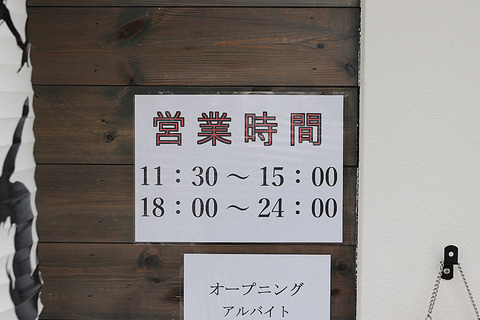 営業時間
11：30～15：00
18：00～24：00
オープニング
アルバイト